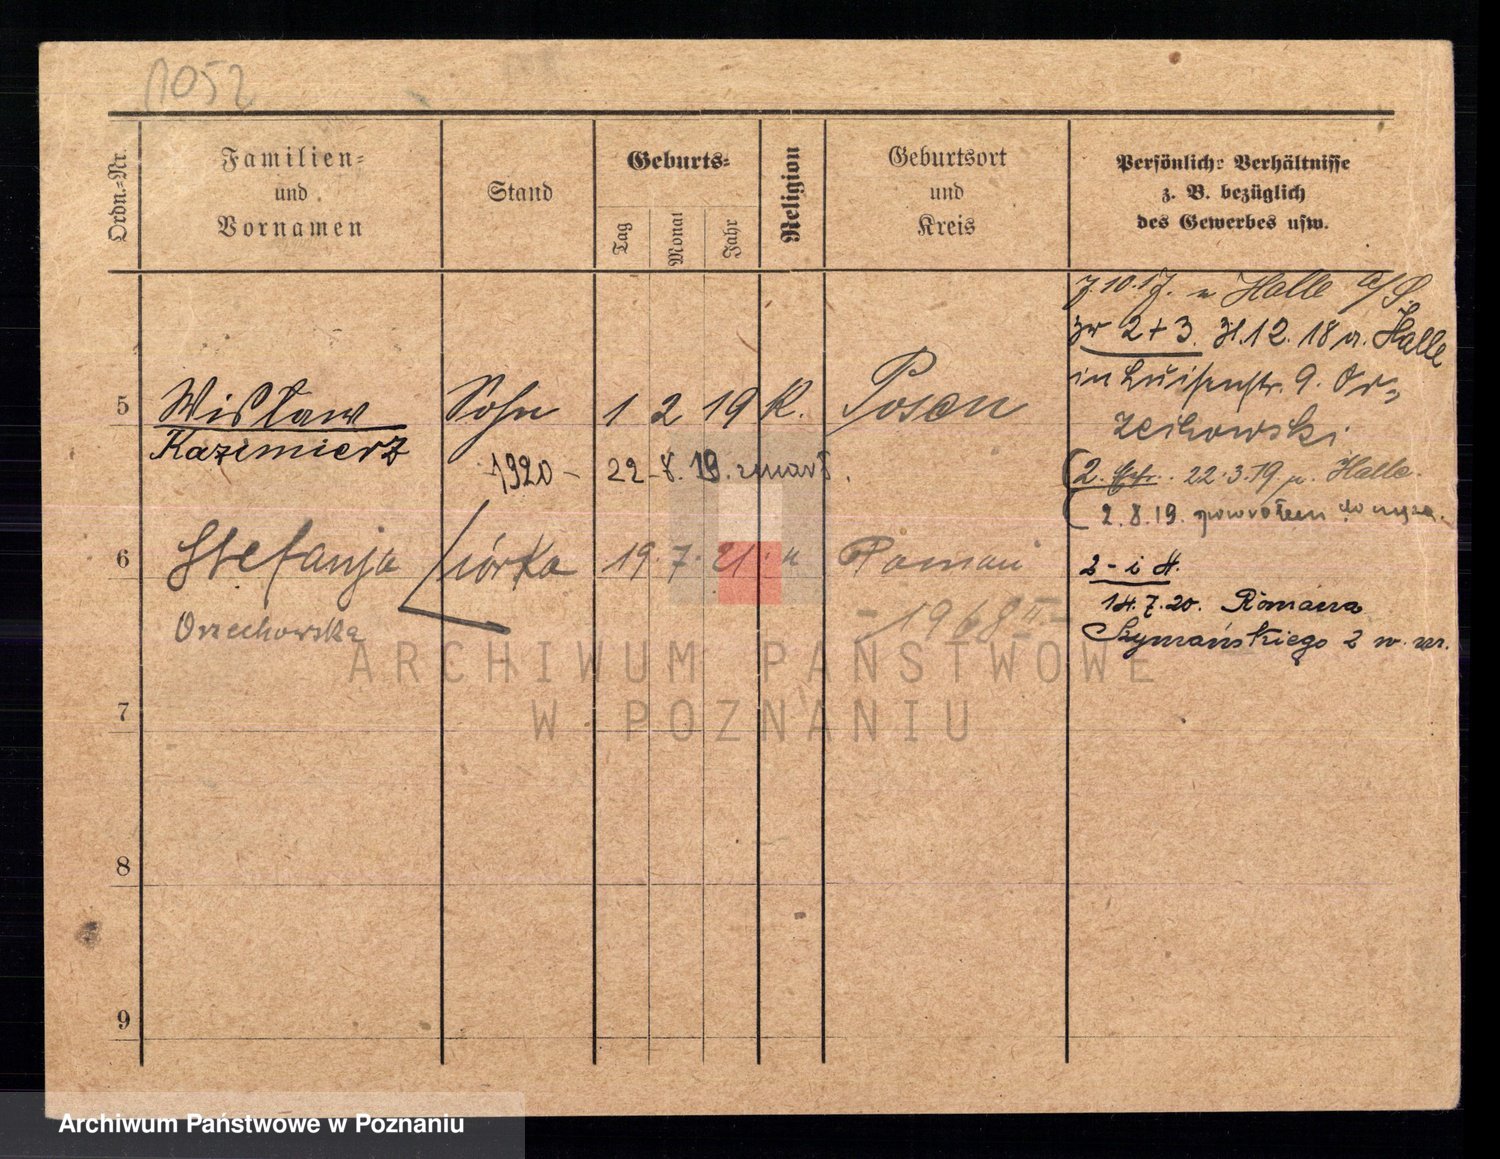 1052
Ordn.=Nr.
Familien=
und
Vornamen
Stand
Geburts=
Tag
Monat
Jahr
Religion
Geburtsort
und
Kreis
Persönliche Verhältnisse
z. B. bezüglich
des Gewerbes usw.
7.10.17. n Halle a/S.
zr 2+3. 31.12.18 n. Halle
in Luisenstr. 9. Or=
zechowski
5 Wisław Sohn 1 2 19 K. Posen
Kazimierz
1920 - 22-8.19. zmarł.
(2. 22.3.19. n. Halle.
2.8.19. powrotem do męża.
6 Stefanja córka 19. 7. 21. Poznań
Orzechowska
- 1968 II -
2 - i 4.
14.7.20. Romana
Szymańskiego 2 w. wr.
ARCHIWUM PAŃSTWOWE
W POZNANIU
7
8
9
Archiwum Państwowe w Poznaniu